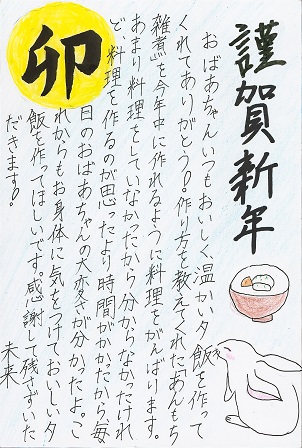 謹賀新年
おばあちゃんいつもおいしく、温かい夕飯を作って
くれてありがとう!!作り方を教えてくれたあんもち
雑煮を今年中に作れるように料理をがんばります。
あまり料理をしていなかったから分からなかったけれ
ど、料理を作るのが思ったより時間がかかったから、毎
日のおばあちゃんの大変さが分かったよ。こ
れからもお身体に気をつけておいしい夕
飯を作ってほしいです。感謝して残さずいた
だきます!!
未来
卯